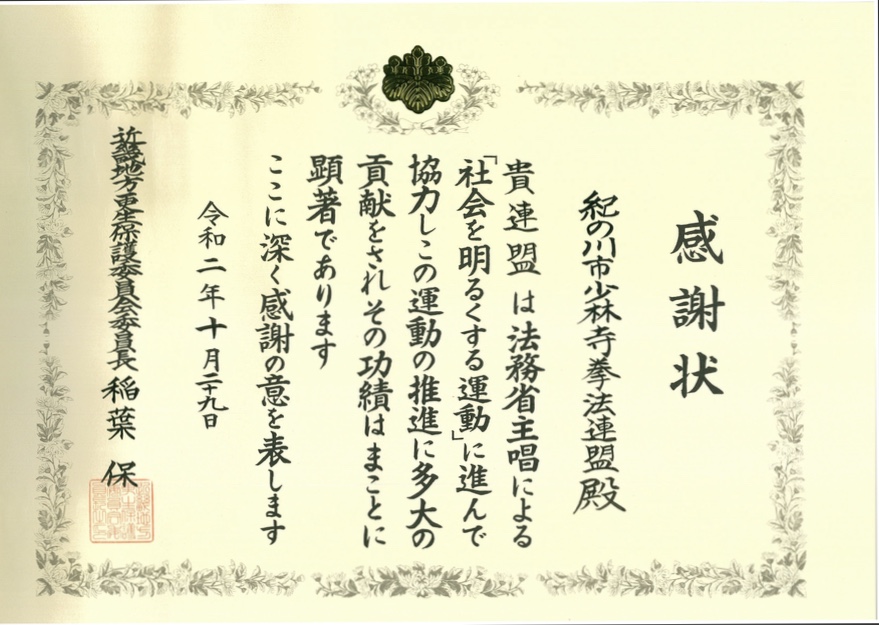 感謝状
紀の川市少林寺拳法連盟殿
貴連盟は法務省主唱による
「社会を明るくする運動」に進んで
協力しこの運動の推進に多大の
貢献をされその功績はまことに
顕著であります
ここに深く感謝の意を表します
令和二年十月二十九日
近畿地方更生保護委員会委員長 稲葉 保